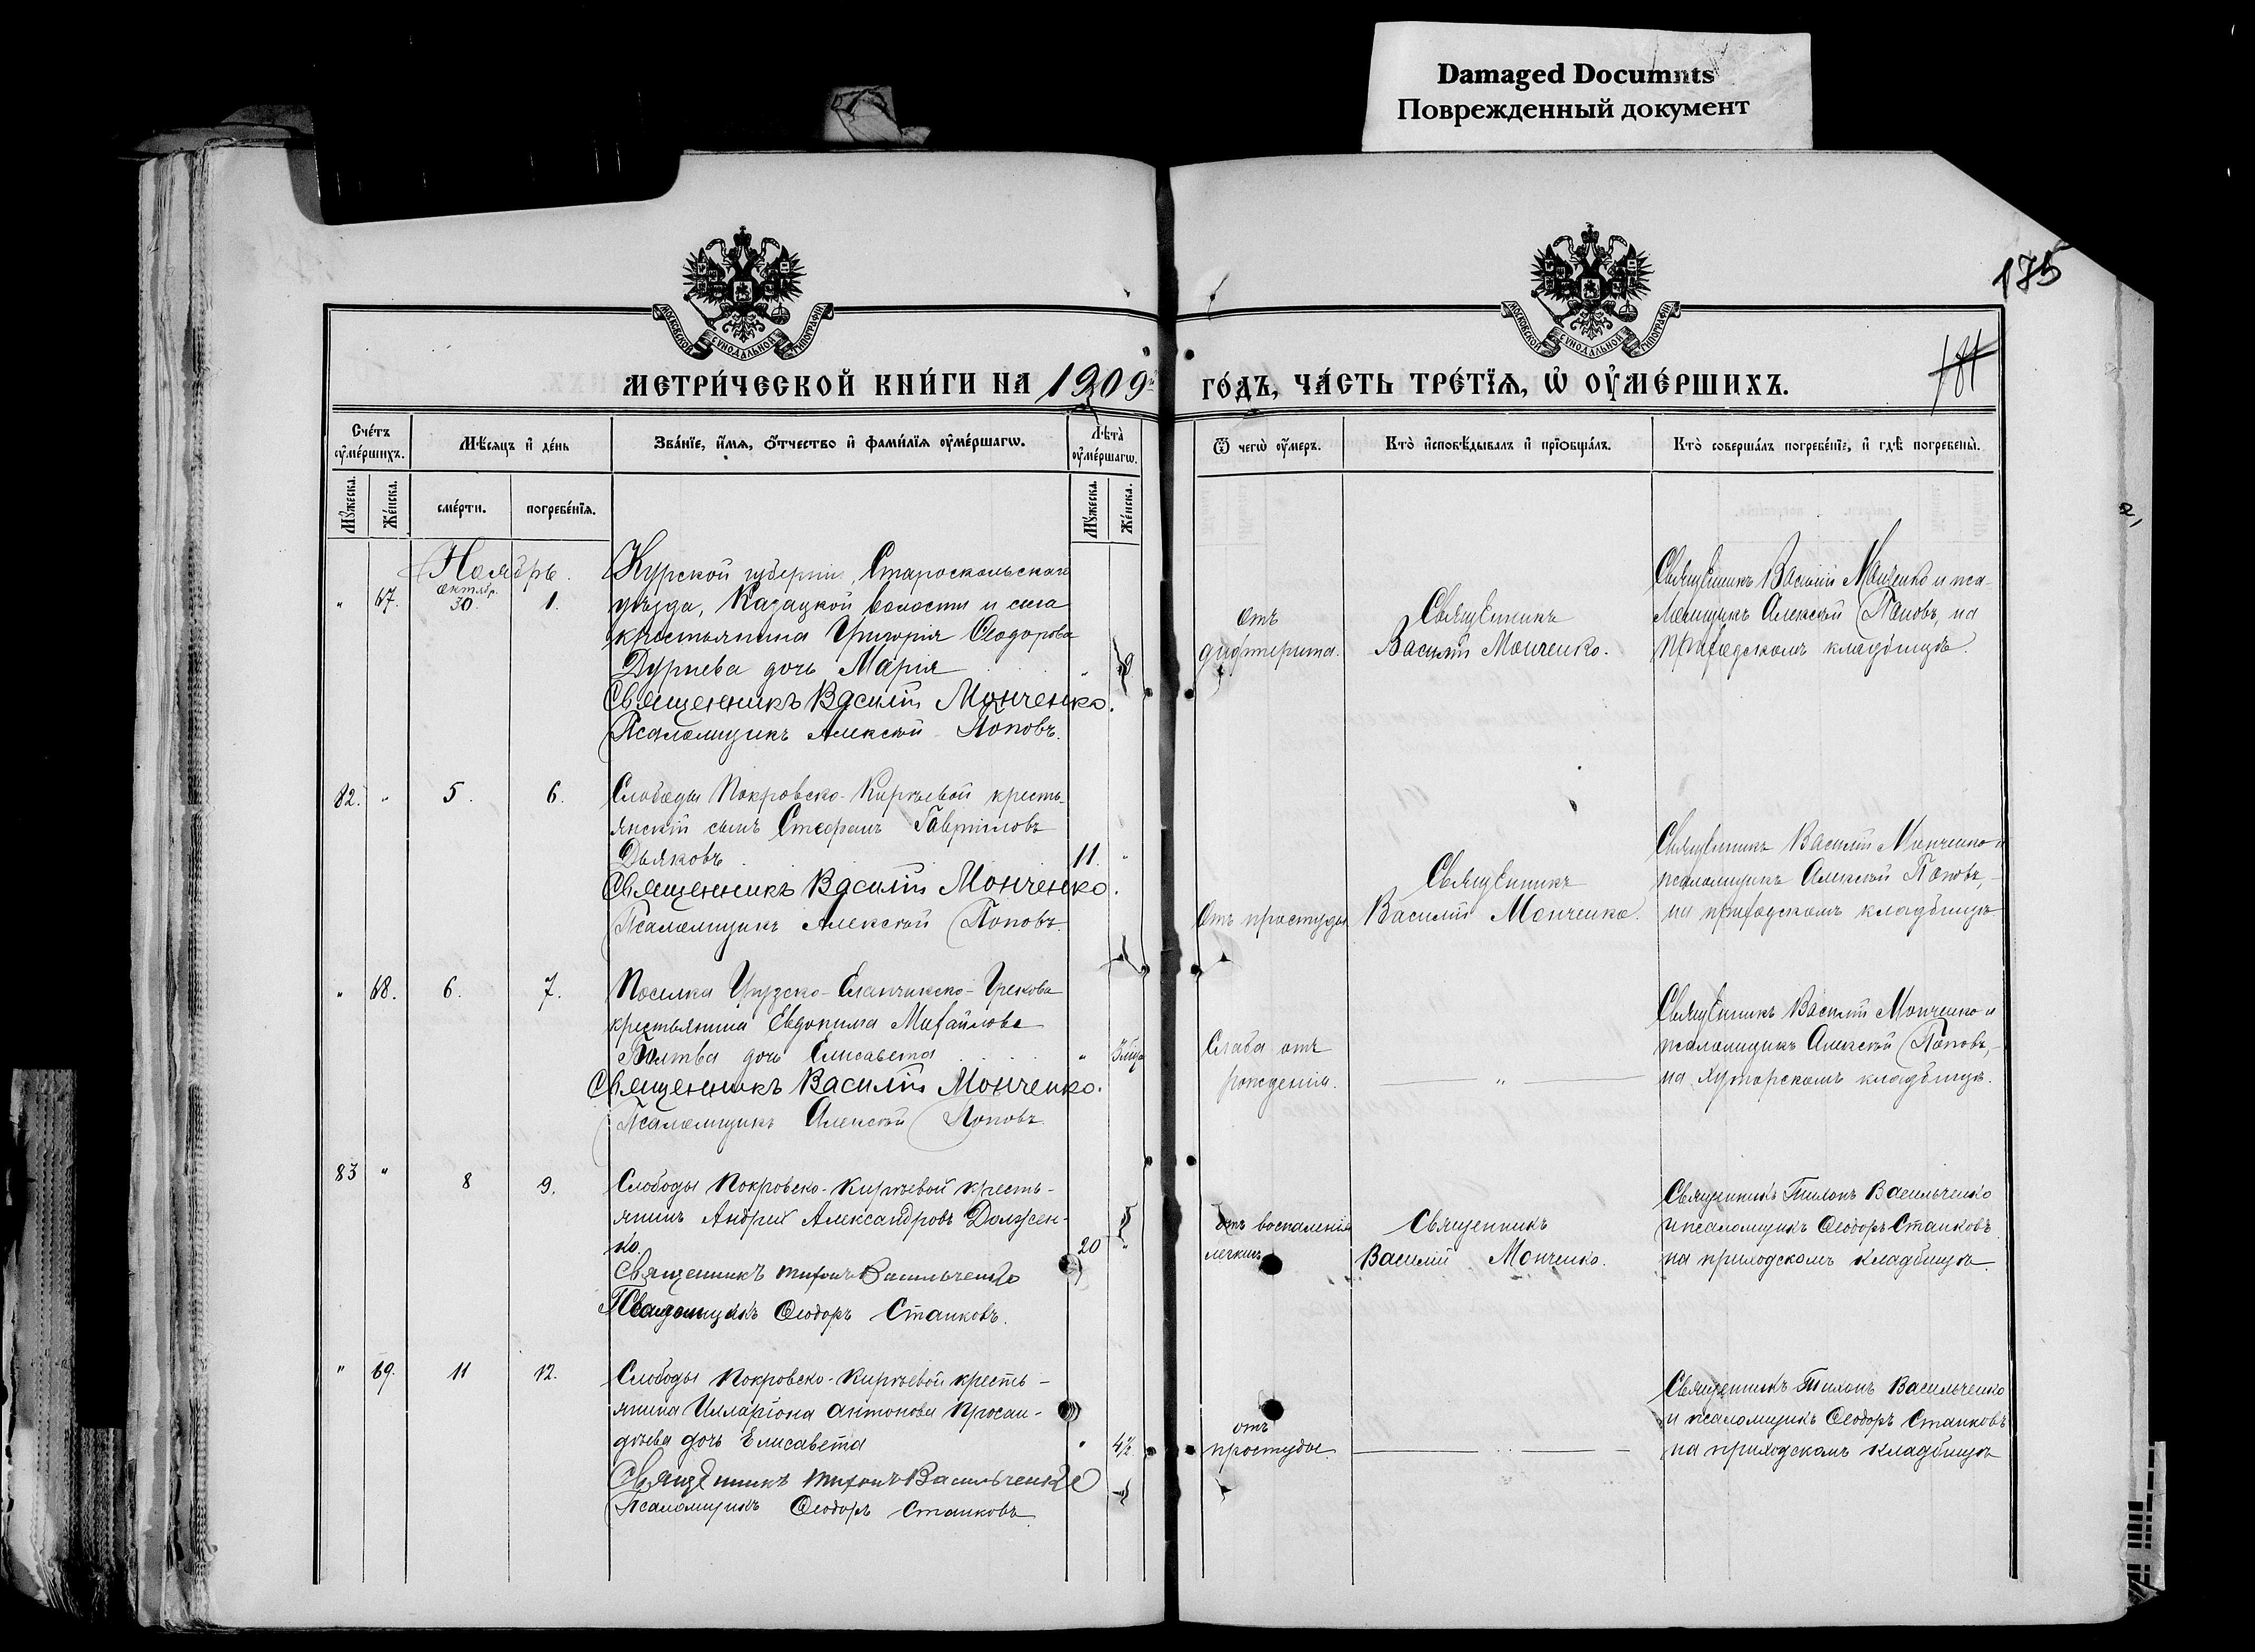 Damaged Documnts
Поврежденный документ
175
181
МОСКОВСКОЙ СѴНОДАЛЬНОЙ ТИПОГРАФІИ
МОСКОВСКОЙ СѴНОДАЛЬНОЙ ТИПОГРАФІИ
МЕТРИ́ЧЕСКОЙ КНИ́ГИ НА 1909й
ГО́ДЪ, ЧА́СТЬ ТРЕ́ТІѦ, Ѡ҆ ОУ҆МЕ́РШИХЪ.
Сче́тъ оу҆ме́ршихъ.
Мѣ́сяцъ и҆ де́нь
Зва́нїе, и҆́мѧ, ѻ҆́тчество и҆ фами́лїѧ оу҆ме́ршагѡ.
Лѣта̀ оу҆ме́ршагѡ.
Ѿ чегѡ̀ оу҆́меръ.
Кто̀ и҆сповѣ́дывалъ и҆ прїѡбща́лъ.
Кто̀ соверша́лъ погребе́нїе, и҆ гдѣ̀ погребены̀.
Мꙋ́жеска.
Же́нска.
сме́рти.
погребе́нїѧ.
Мꙋ́жеска.
Же́нска.
Ноябрь.
Октябр.
" 67. 30. 1.
Курской губерніи, Старооскольскаго
уѣзда, Казацкой волости и села
крестьянина Григорія Ѳеодорова
Дурнева дочь Марія
Священникъ Василій Монченко.
Псаломщикъ Алексѣй Поповъ.
отъ
дифтерита.
Священникъ
Василій Монченко.
Священникъ Василій Монченко и пса-
ломщикъ Алексѣй Поповъ, на
приходскомъ кладбищѣ.
82. " 5. 6.
Слободы Покровско-Кирѣевой кресть-
янскій сынъ Стефанъ Гавріиловъ
Дьяковъ. 11. "
Священникъ Василій Монченко.
Псаломщикъ Алексѣй Поповъ.
Отъ простуды
Священникъ
Василій Монченко.
Священникъ Василій Монченко и
псаломщикъ Алексѣй Поповъ,
на приходскомъ кладбищѣ
" 68. 6. 7.
Поселка Грузско-Еланчикско-Грекова
крестьянина Евдокима Михайлова
дочь Елисавета "
Священникъ Василій Монченко.
Псаломщикъ Алексѣй Поповъ
Слаба отъ
рожденія.
"
Священникъ Василій Монченко и
псаломщикъ Алексѣй Поповъ,
на хуторскомъ кладбищѣ.
83 " 8 9.
Слободы Покровско-Кирѣевой кресть-
янинъ Андрей Александровъ Должен-
ко. 20 "
Священникъ Тихонъ Васильченко
Псаломщикъ Ѳеодоръ Станковъ.
отъ воспаленія
легкихъ
Священникъ
Василій Монченко.
Священникъ Тихонъ Васильченко
и псаломщикъ Ѳеодоръ Станковъ
на приходскомъ кладбищѣ.
" 69. 11 12.
Слободы Покровско-Кирѣевой кресть-
янина Илларіона Антонова Просан-
дѣева дочь Елисавета " 4½
Священникъ Тихонъ Васильченко
Псаломщикъ Ѳеодоръ Станковъ
отъ
простуды
Священникъ Тихонъ Васильченко
и псаломщикъ Ѳеодоръ Станковъ
на приходскомъ кладбищѣ